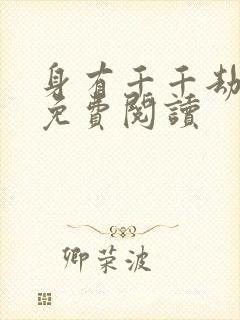 身有千千劫
免費閱讀
卿荣波